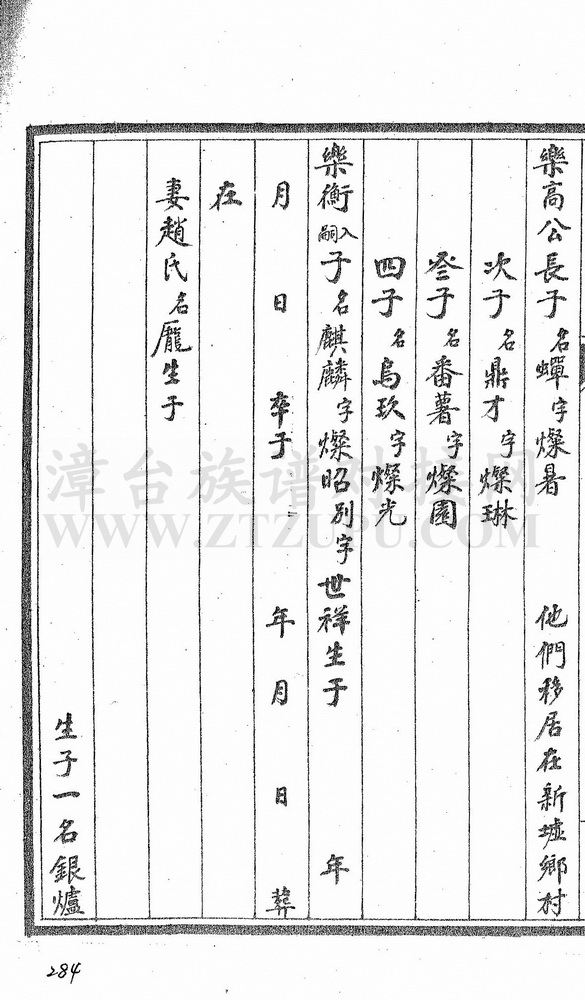 樂高公長子名蟬字燦暑 他們移居在新墟鄉村
次子名鼎才字燦琳
叁子名番薯字燦園
四子名烏玖字燦光
樂衡嗣入子名麒麟字燦昭別字世祥生于 年
月 日 卒于 年 月 日 葬
在
妻趙氏名龎生于
生子一名銀爐
284
漳台族谱对接网
WWW.ZTZUPU.COM